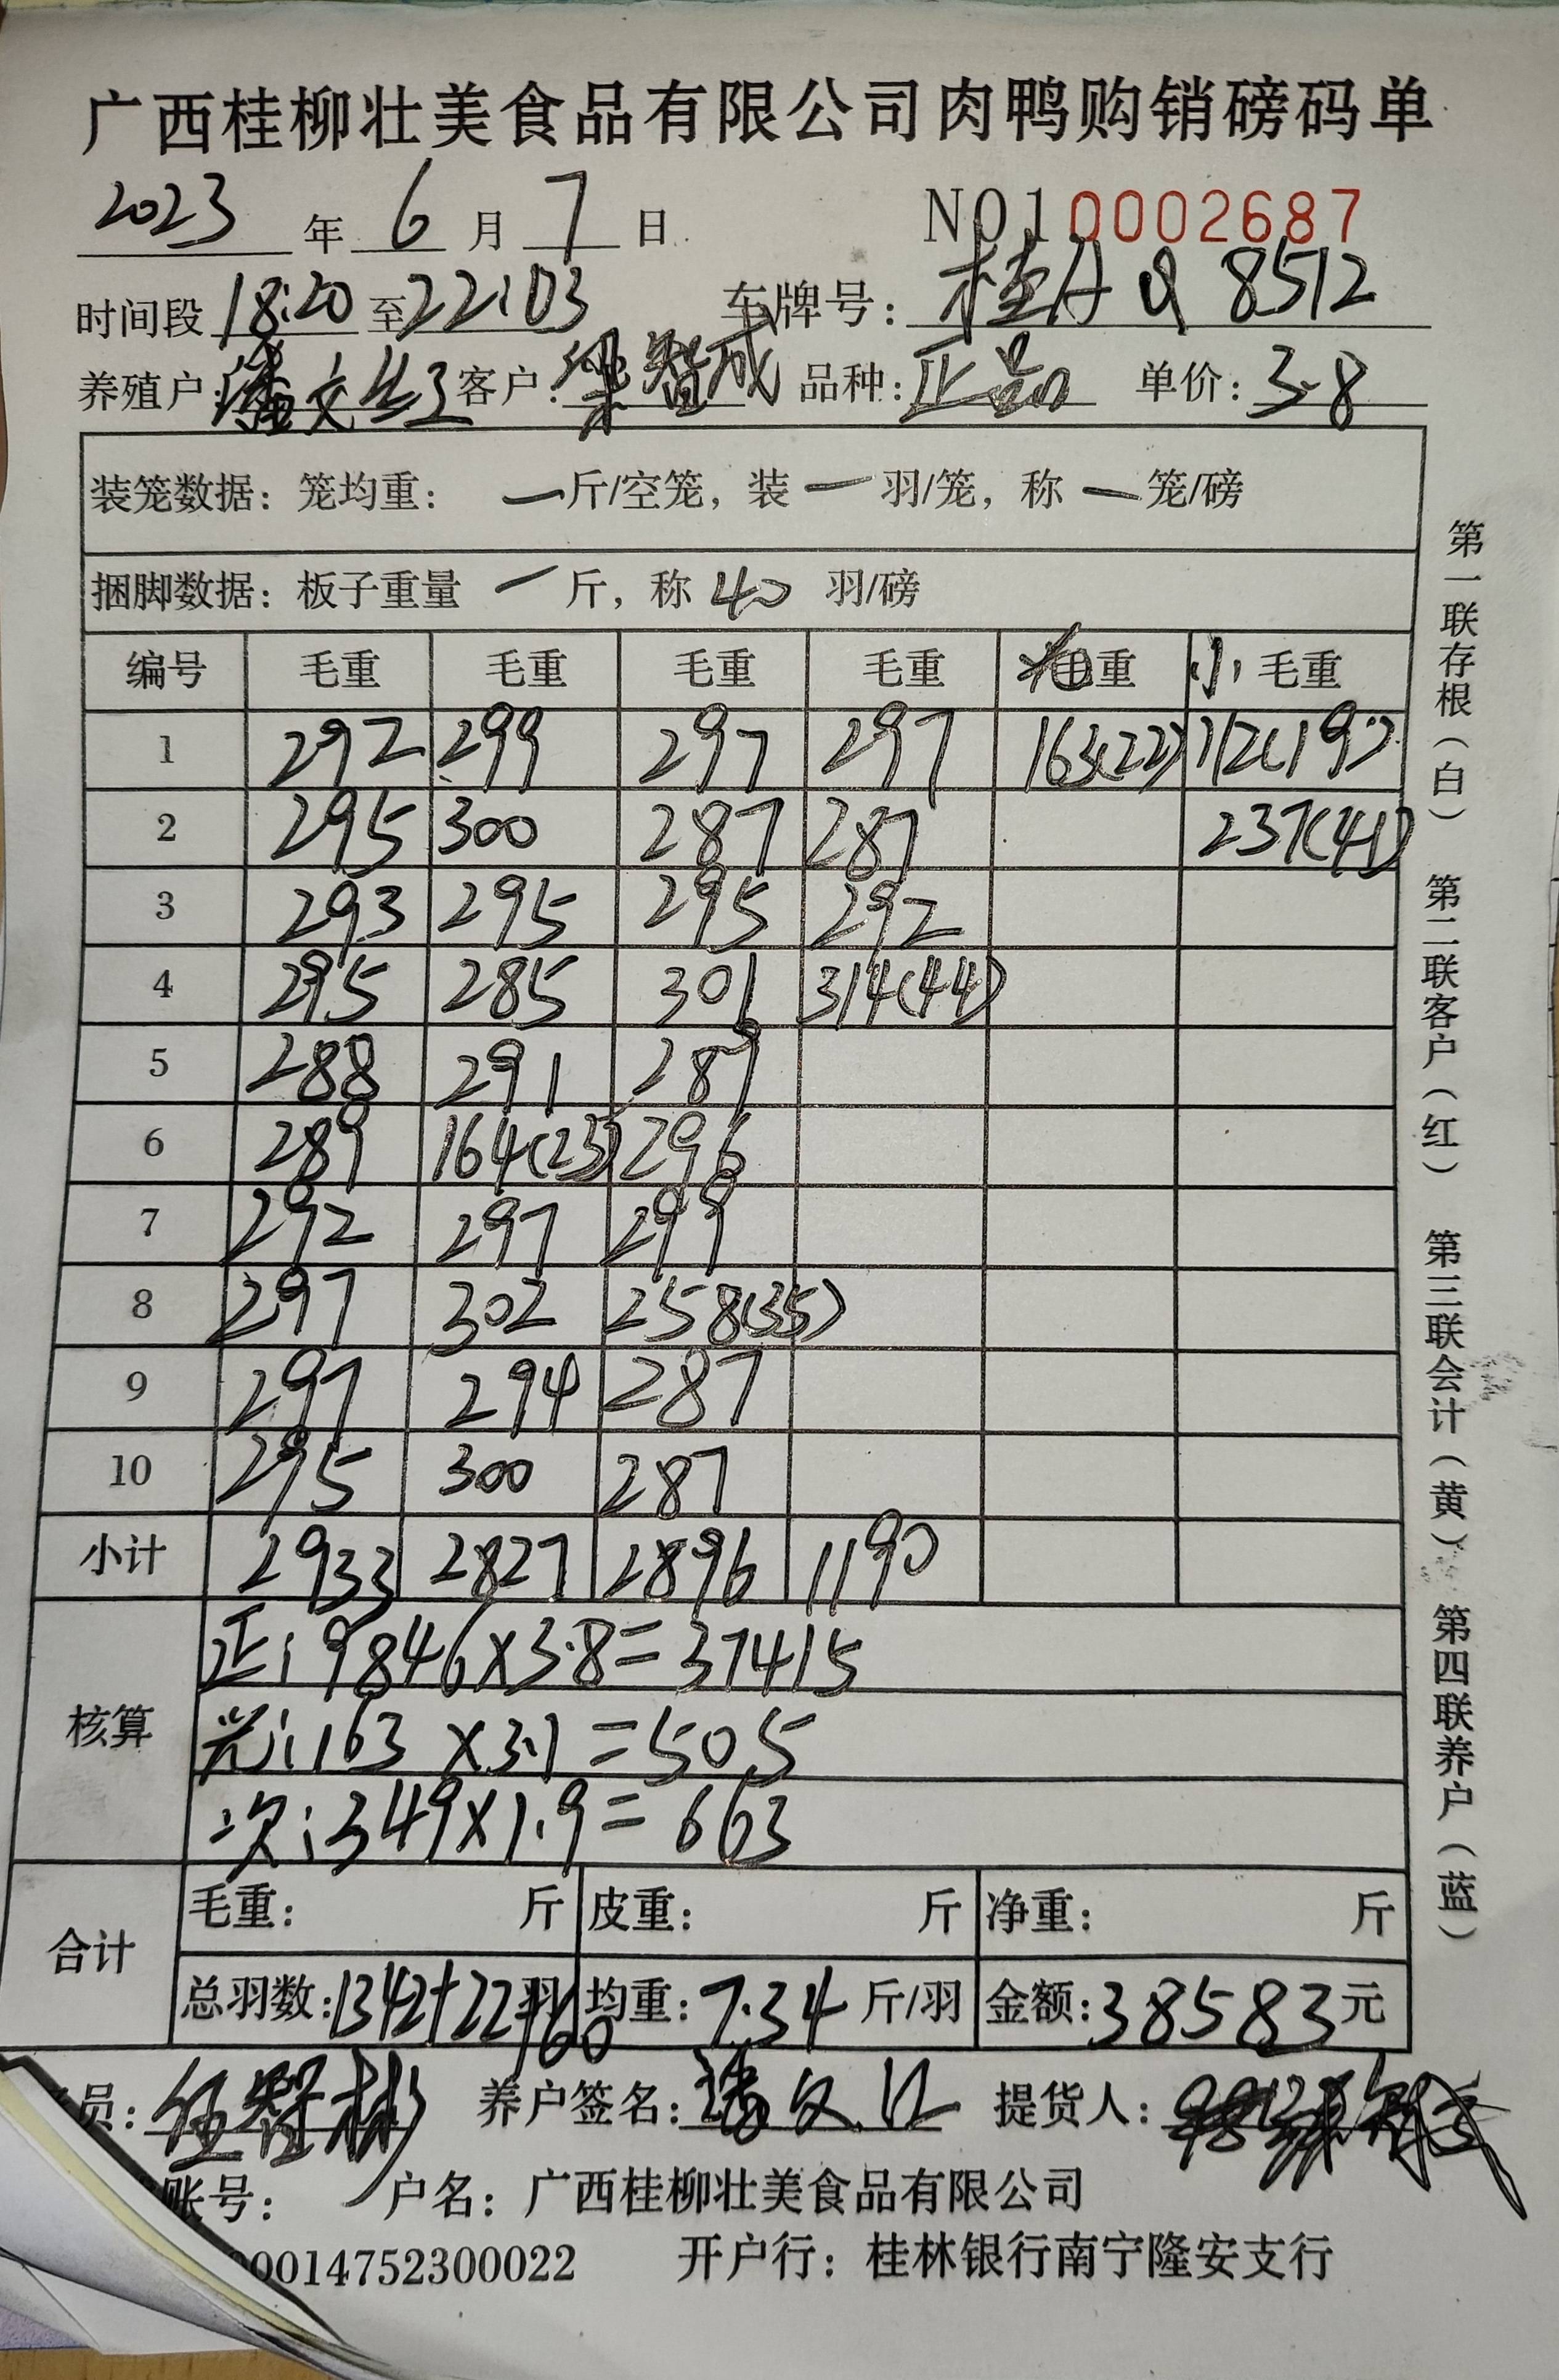 广西桂柳壮美食品有限公司肉鸭购销磅码单
2023 年 6 月 7 日 NO10002687
时间段 18:20 至 22:03 车牌号: 桂A Q 8512
养殖户: 潘文红 客户: 梁智成 品种: 正品 单价: 3.8
装笼数据: 笼均重: 一 斤/空笼, 装 一 羽/笼, 称 一 笼/磅
捆脚数据: 板子重量 一 斤, 称 40 羽/磅
编号 毛重 毛重 毛重 毛重 毛重 小 毛重
1 292 299 297 297 163(22) 112(19)
2 295 300 287 287 237(41)
3 293 295 295 292
4 295 285 301 314(44)
5 288 291 289
6 289 164(23) 296
7 292 297 299
8 297 302 258(35)
9 297 294 287
10 295 300 287
小计 2933 2827 2896 1190
核算
正: 9846×3.8=37415
光: 163 ×3.1=505
次: 349×1.9=663
合计
毛重: 斤 皮重: 斤 净重: 斤
总羽数: 1342+22+60 羽 均重: 7.34 斤/羽 金额: 38583 元
员: 伍智彬 养户签名: 潘文红 提货人:
账号: 户名: 广西桂柳壮美食品有限公司
00014752300022 开户行: 桂林银行南宁隆安支行
第一联存根(白) 第二联客户(红) 第三联会计(黄) 第四联养户(蓝)